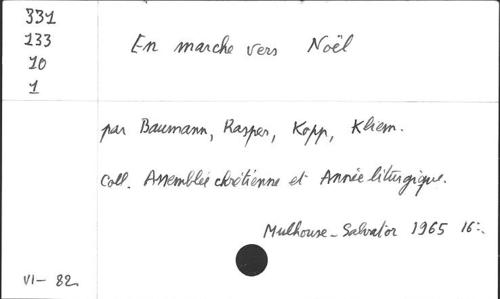 331
133
10
1
En marche vers Noël
par Baumann, Rasper, Kopp, Kliem.
Coll. Assemblée chrétienne et Année liturgique.
Mulhouse - Salvator 1965 16:
VI- 82